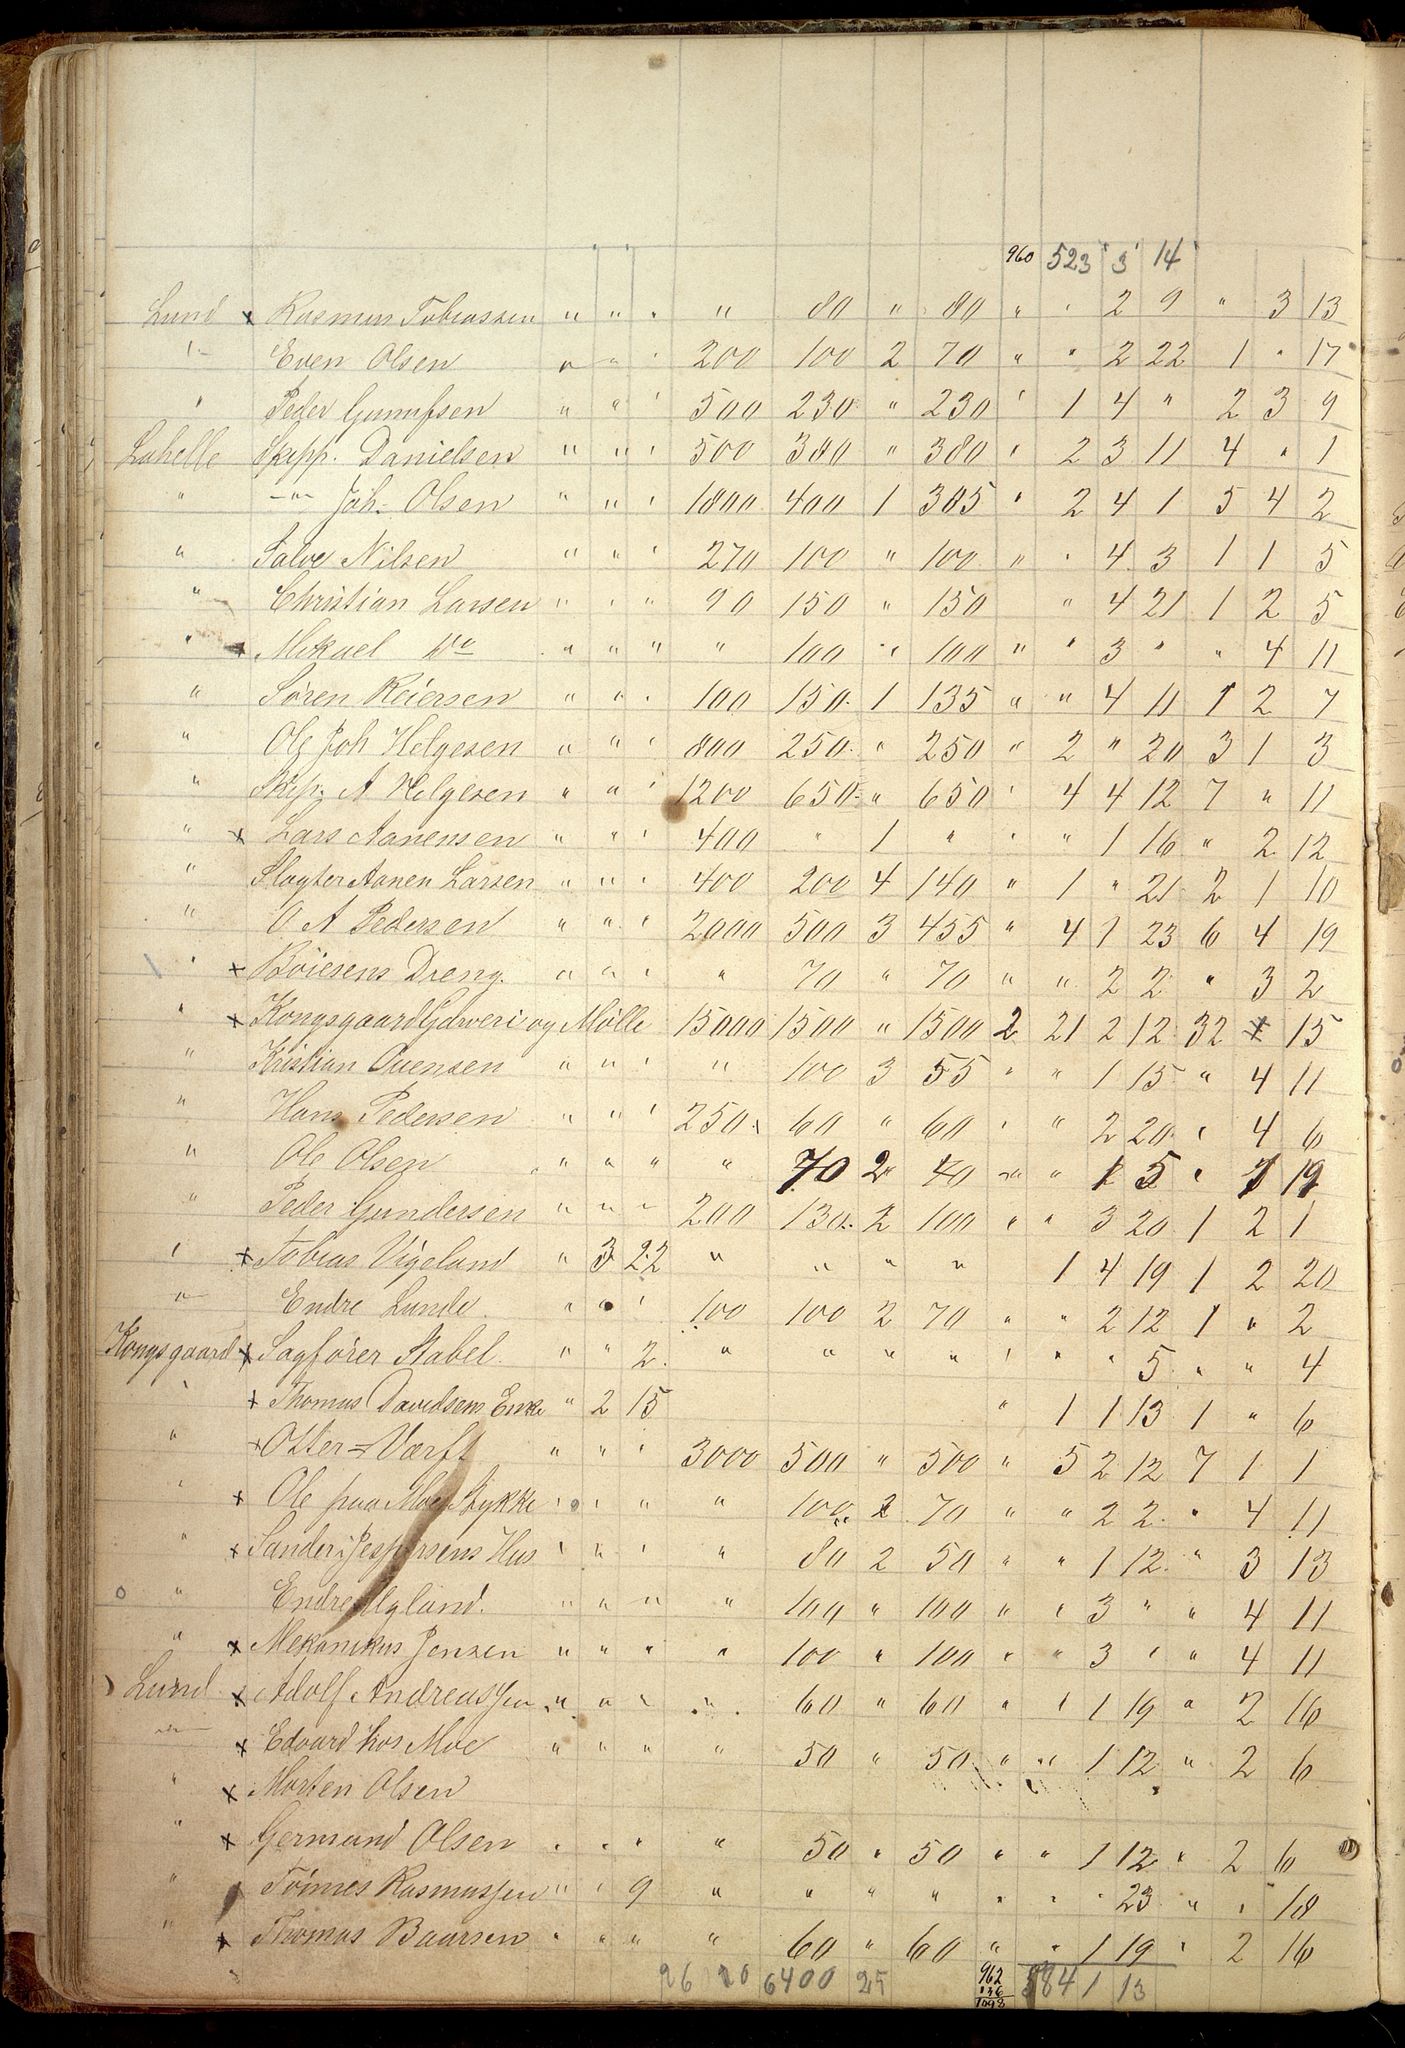 960 523 3 14
Lund x Rasmus Tobiassen " " " " 80 " 80 " " 2 9 " 3 13
"- Even Olsen " " " 200 100 2 70 " " 2 22 1 " 17
" Peder Gunufsen " " " 500 230 " 230 " 1 4 " 2 3 9
Lahelle Skipp. Danielsen " " " 500 380 " 380 " 2 3 11 4 " 1
" -"- Joh. Olsen " " " 1800 400 1 385 " 2 4 1 5 4 2
" Salve Nilsen " " " 270 100 " 100 " " 4 3 1 1 5
" Christian Larsen " " " 90 150 " 150 " 4 21 1 2 5
" x Mikael Do " " " " 100 " 100 " " 3 " " 4 11
" Sören Reiersen " " " 100 150 1 135 " " 4 11 1 2 7
" Ole Joh Helgesen " " " 800 250 " 250 " 2 " 20 3 1 3
" Skip. A Helgesen " " " 1200 650 " 650 " 4 4 12 7 " 11
" x Lars Aanensen " " " 400 " 1 " " " 1 16 " 2 12
" Slagter Aanen Larsen " " " 400 200 4 140 " 1 " 21 2 1 10
" O A Pedersen " " " 2000 500 3 455 " 4 1 23 6 4 19
" x Böiesens Dreng. " " " " 70 " 70 " " 2 2 " 3 2
" x Kongsgaard Garveri og Mölle 15000 1500 " 1500 2 21 2 12 32 x 15
" Kristian Ouensen " " " " 100 3 55 " " 1 15 " 4 11
" Hans Pedersen " " " 250 60 " 60 " " 2 20 " 4 6
" Ole Olsen " " " " 70 2 40 " " 1 5 " 1 19
" Peder Gundersen " " " 200 130 2 100 " " 3 20 1 2 1
" x Tobias Vigeland " 3 22 " " " " 1 4 19 1 2 20
" Endre Lunde " " " 100 100 2 70 " " 2 12 1 " 2
Kongsgaard x Sagförer Stabel. " " 2 " " " " " " " 5 " " 4
" x Thomas Davidsens Enke " 2 15 " 1 1 13 1 " 6
" x Otter=Værft " " " 3000 500 " 500 " 5 2 12 7 1 1
" x Ole paa Moes Stykke " " " " 100 2 70 " " 2 2 " 4 11
" x Sander Jespersens Hus " " " " 80 2 50 " " 1 12 " 3 13
o " Endre Ugland. " " " " 100 " 100 " " 3 " " 4 11
" x Mekanikus Jensen " " " " 100 " 100 " " 3 " " 4 11
Lund x Adolf Andreassen " " " " 60 " 60 " " 1 19 " 2 16
-"- x Edvard hos Moe " " " " 50 " 50 " " 1 12 " 2 6
" x Morten Olsen
" x Germund Olsen " " " " 50 " 50 " " 1 12 " 2 6
" Tönnes Rasmussen " " 9 " " " " " " " 23 " " 18
" x Thomas Baarsen " " " " 60 " 60 " " 1 19 " 2 16
26 20 6400 25 962 584 1 13
136
1098